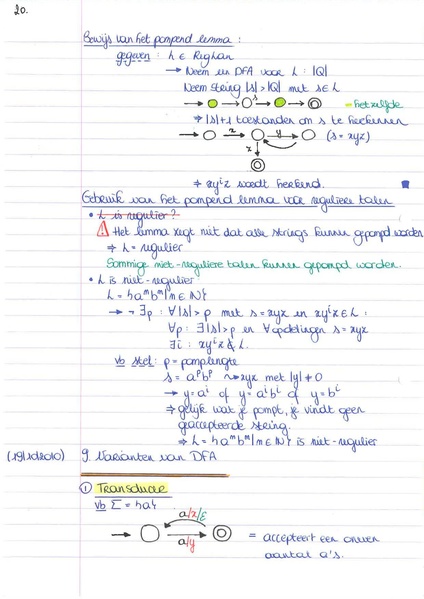 20.
Bewijs van het pompend lemma :
gegeven : L ∈ RegLan
→ Neem een DFA voor L : |Q|
Neem string |s| > |Q| met s ∈ L
s
= hetzelfde
⇒ |s|+1 toestanden om s te herkennen
x y (s = xyz)
z
⇒ xyⁱz wordt herkend.
Gebruik van het pompend lemma voor reguliere talen
• L is regulier?
! Het lemma zegt niet dat alle strings kunnen gepompt worden
⇒ L = regulier
Sommige niet-reguliere talen kunnen gepompt worden.
• L is niet-regulier
L = {aᵐbᵐ | m ∈ ℕ}
→ ¬ ∃p : ∀|s| > p met s = xyz en xyⁱz ∈ L :
∀p : ∃|s| > p en ∀ opdelingen s = xyz
∃i : xyⁱz ∉ L.
vb stel : p = pomplengte
s = aᵖbᵖ ⤳ xyz met |y| ≠ 0
→ y = aⁱ of y = aⁱbⁱ of y = bⁱ
⇒ gelijk wat je pompt, je vindt geen
geaccepteerde string.
⇒ L = {aᵐbᵐ | m ∈ ℕ} is niet-regulier
(19/10/2010) 9. Varianten van DFA
① Transducer
vb Σ = {a}
a/x/ε
a/y
= accepteert een oneven
aantal a's.